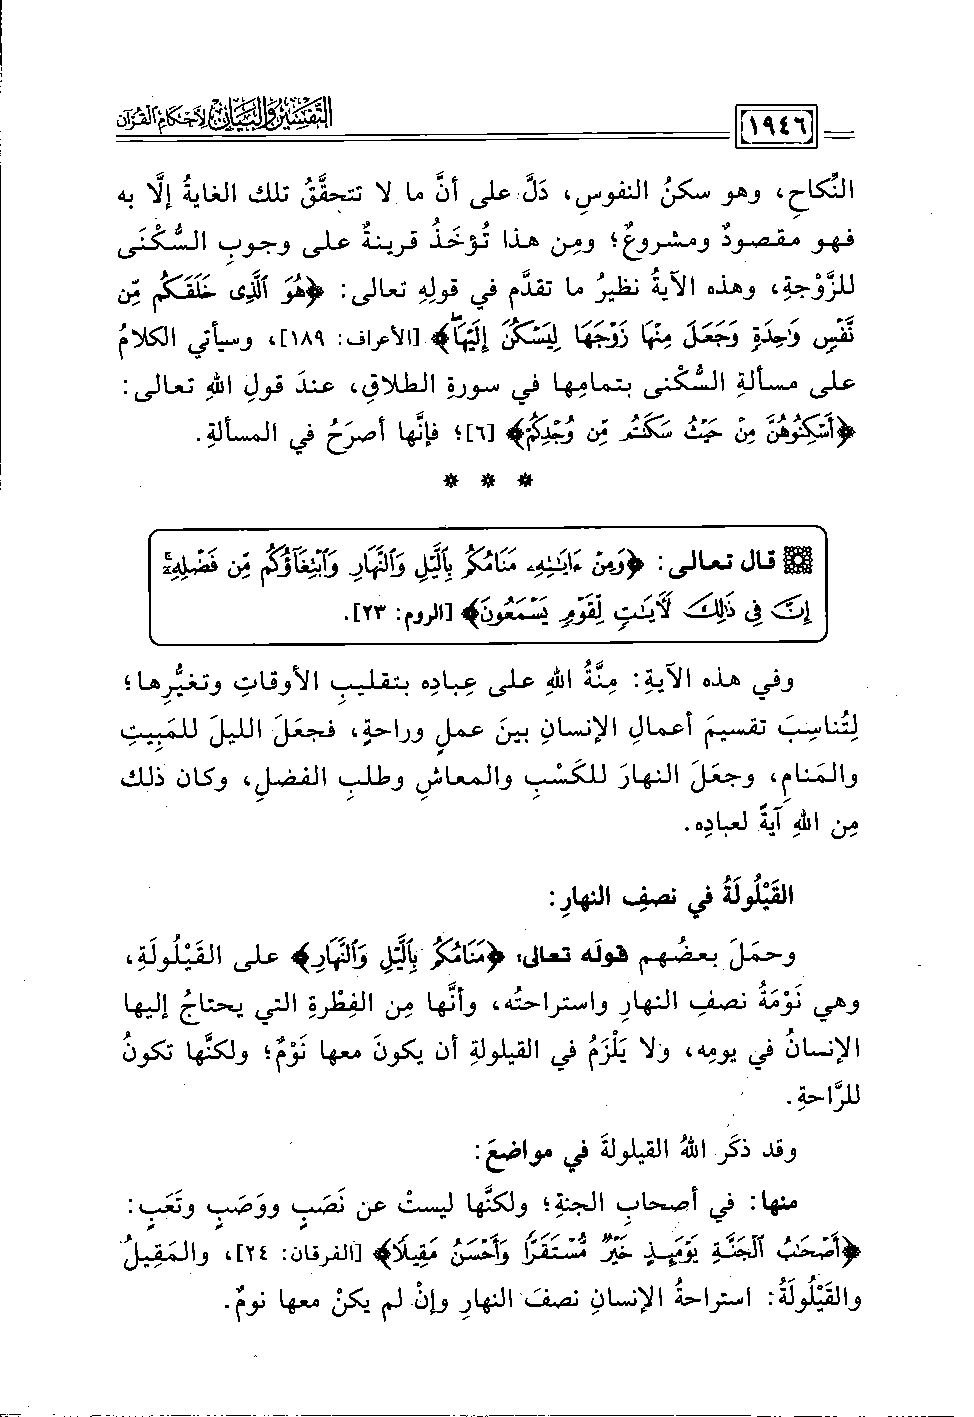 التفسير والبيان لأحكام القرآن
١٩٤٦
النِّكاحِ، وهو سكنُ النفوسِ، دَلَّ على أنَّ ما لا تتحقَّقُ تلك الغايةُ إلَّا به
فهو مقصودٌ ومشروعٌ؛ ومِن هذا تُؤخَذُ قرينةٌ على وجوبِ السُّكْنَى
للزَّوْجةِ، وهذه الآيةُ نظيرُ ما تقدَّم في قولِهِ تعالى: ﴿هُوَ ٱلَّذِى خَلَقَكُم مِّن
نَّفْسٍ وَٰحِدَةٍ وَجَعَلَ مِنْهَا زَوْجَهَا لِيَسْكُنَ إِلَيْهَاۖ﴾ [الأعراف: ١٨٩]، وسيأتي الكلامُ
على مسألةِ السُّكْنى بتمامِها في سورةِ الطلاقِ، عندَ قولِ اللهِ تعالى:
﴿أَسْكِنُوهُنَّ مِنْ حَيْثُ سَكَنتُم مِّن وُجْدِكُمْ﴾ [٦]؛ فإنَّها أصرَحُ في المسألةِ.
* * *
قال تعالى: ﴿وَمِنْ ءَايَٰتِهِۦ مَنَامُكُم بِٱلَّيْلِ وَٱلنَّهَارِ وَٱبْتِغَآؤُكُم مِّن فَضْلِهِۦٓۚ
إِنَّ فِى ذَٰلِكَ لَأٓيَٰتٍ لِّقَوْمٍ يَسْمَعُونَ﴾ [الروم: ٢٣].
وفي هذه الآيةِ: مِنَّةُ اللهِ على عِبادِه بتقليبِ الأوقاتِ وتغيُّرِها؛
لِتُناسِبَ تقسيمَ أعمالِ الإنسانِ بينَ عملٍ وراحةٍ، فجعَلَ الليلَ للمَبِيتِ
والمَنامِ، وجعَلَ النهارَ للكَسْبِ والمعاشِ وطلبِ الفضلِ، وكان ذلك
مِن اللهِ آيةً لعبادِه.
القَيْلُولَةُ في نصفِ النهارِ:
وحمَلَ بعضُهم قولَه تعالى: ﴿مَنَامُكُم بِٱلَّيْلِ وَٱلنَّهَارِ﴾ على القَيْلُولَةِ،
وهي نَوْمَةُ نصفِ النهارِ واستراحتُه، وأنَّها مِن الفِطْرةِ التي يحتاجُ إليها
الإنسانُ في يومِه، ولا يَلْزَمُ في القيلولةِ أن يكونَ معها نَوْمٌ؛ ولكنَّها تكونُ
للرَّاحةِ.
وقد ذكَر اللهُ القيلولةَ في مواضعَ:
منها: في أصحابِ الجنةِ؛ ولكنَّها ليستْ عن نَصَبٍ ووَصَبٍ وتَعَبٍ:
﴿أَصْحَٰبُ ٱلْجَنَّةِ يَوْمَئِذٍ خَيْرٌ مُّسْتَقَرًّا وَأَحْسَنُ مَقِيلًا﴾ [الفرقان: ٢٤]، والمَقِيلُ
والقَيْلُولَةُ: استراحةُ الإنسانِ نصفَ النهارِ وإنْ لم يكنْ معها نومٌ.